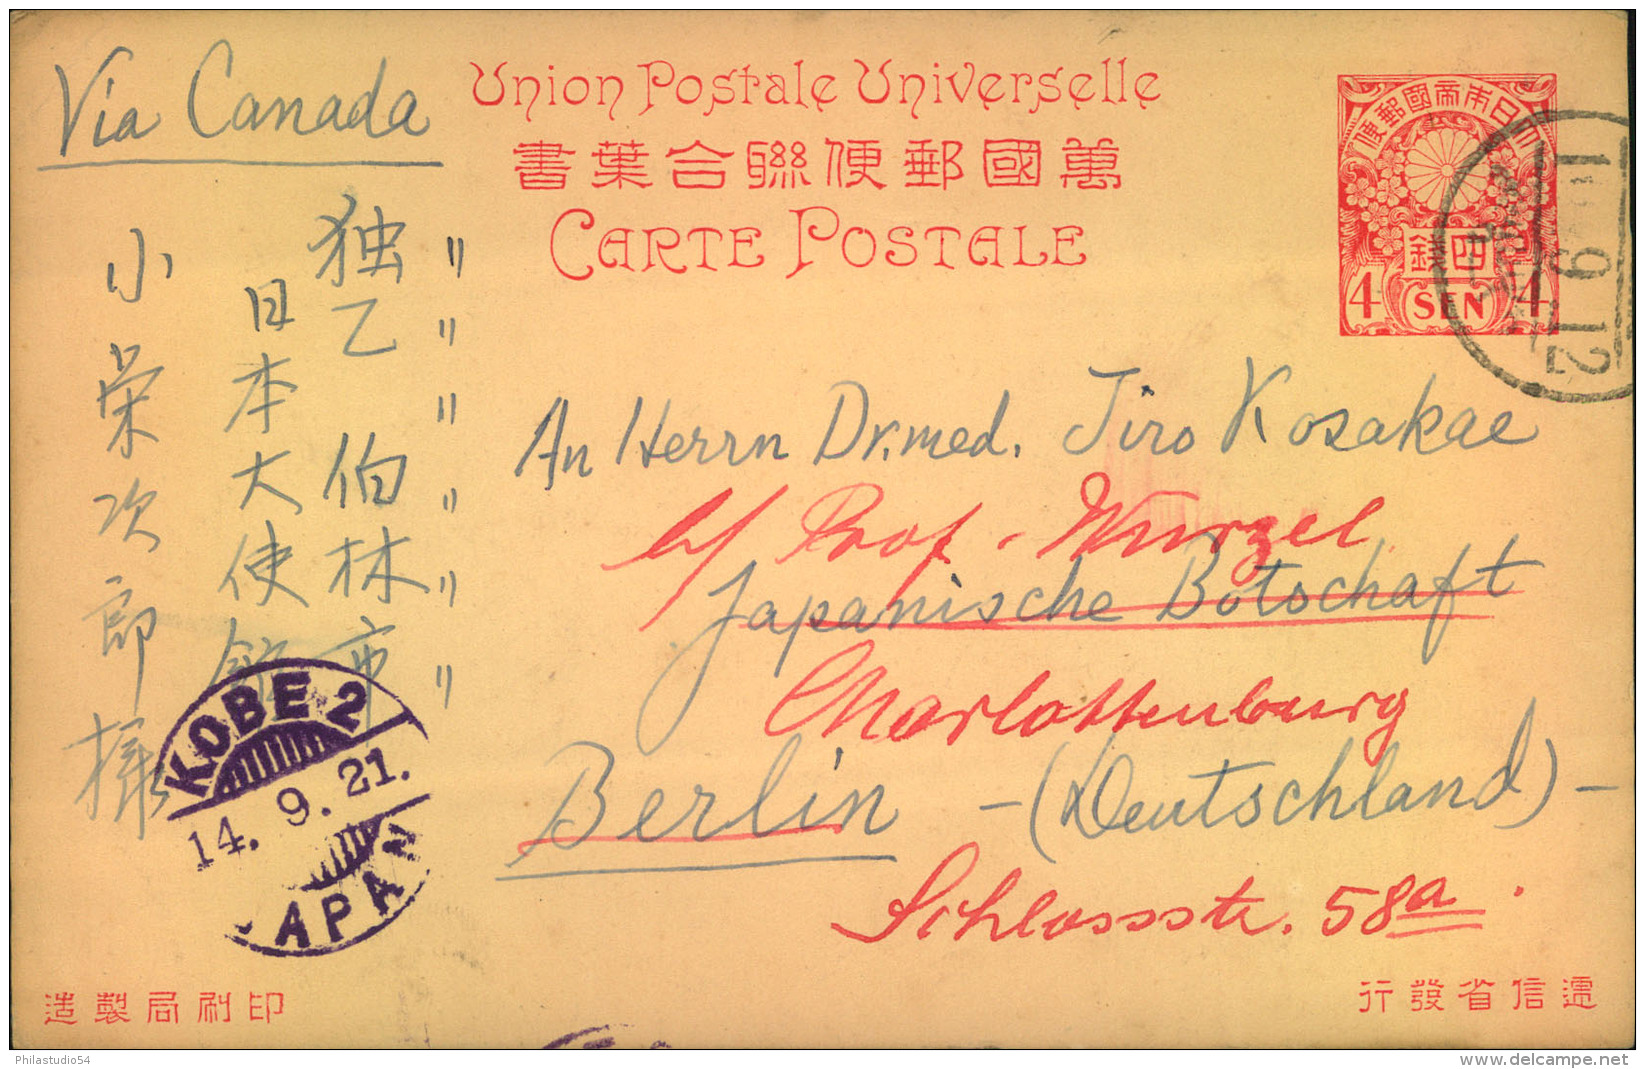 Via Canada
Union Postale Universelle
書葉合聯便郵國萬
CARTE POSTALE
便郵國帝本日大
錢四
4 SEN 4
9.12
独乙 伯林市
日本大使館
小栄次郎様
An Herrn Dr. med. Jiro Kosakae
b/ Prof. Wurzel
Japanische Botschaft
Charlottenburg
Berlin - (Deutschland) -
Schlossstr. 58a
KOBE 2
14. 9. 21.
JAPAN
造製局刷印
行發省信遞
Philastudio54
www.delcampe.net